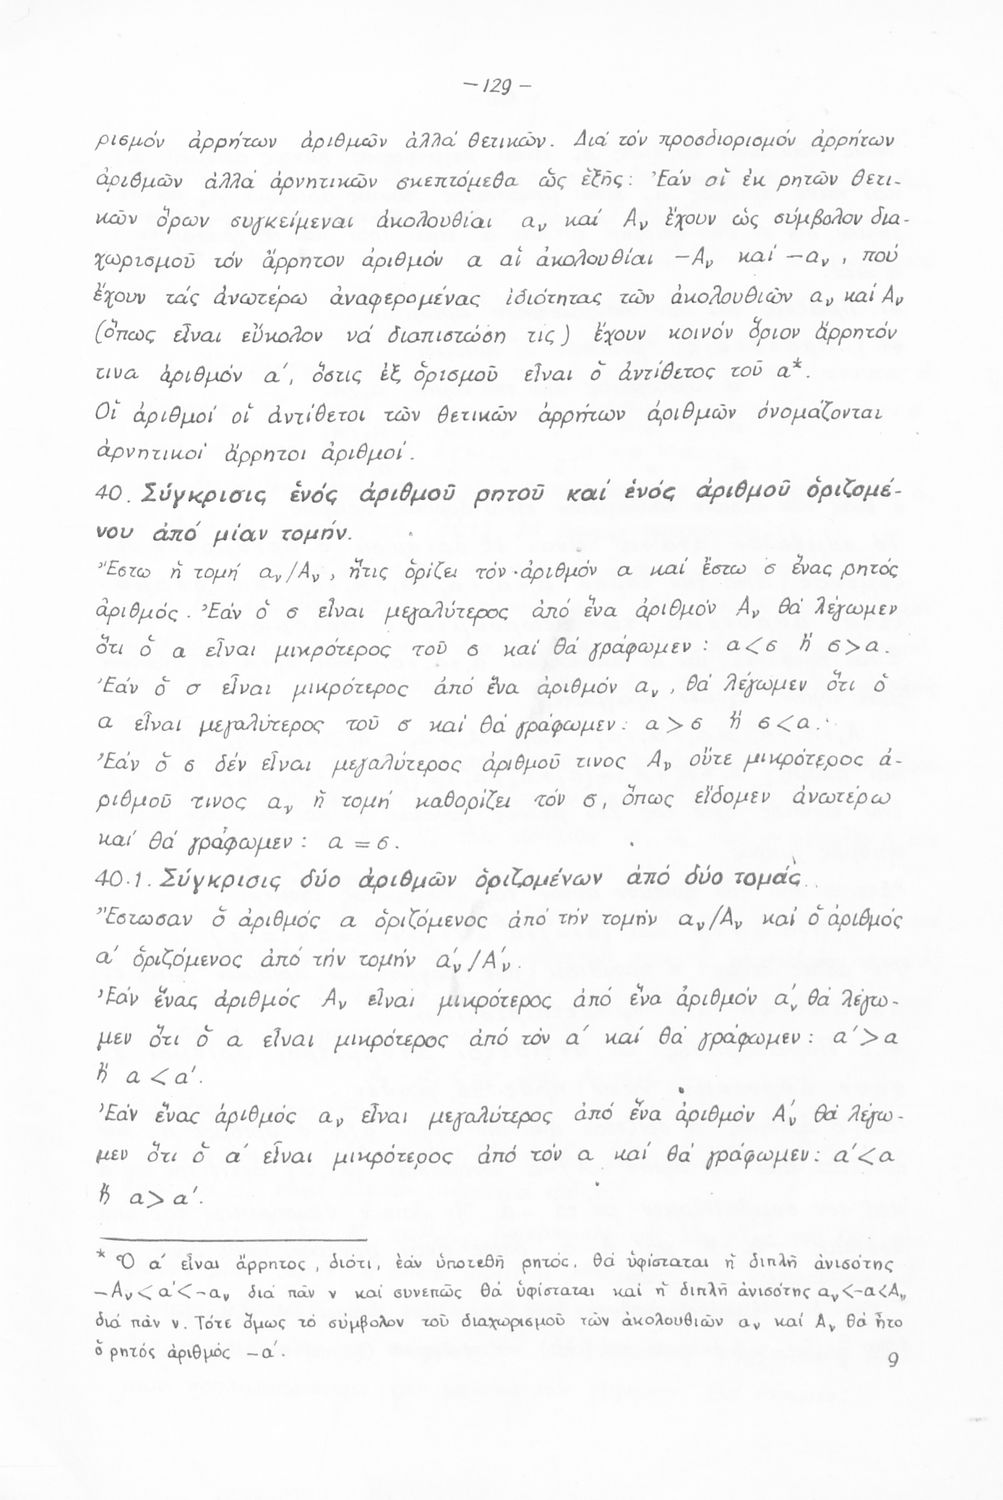 —129—
ρισμόν ἀρρήτων ἀριθμῶν ἀλλά θετικῶν. Διά τόν προσδιορισμόν ἀρρήτων
ἀριθμῶν ἀλλά ἀρνητικῶν σκεπτόμεθα ὡς ἑξῆς: Ἐάν αἱ ἐκ ρητῶν θετι-
κῶν ὅρων συγκείμεναι ἀκολουθίαι αν καί Αν ἔχουν ὡς σύμβολον δια-
χωρισμοῦ τόν ἄρρητον ἀριθμόν α αἱ ἀκολουθίαι —Αν καί —αν, πού
ἔχουν τάς ἀνωτέρω ἀναφερομένας ἰδιότητας τῶν ἀκολουθιῶν αν καί Αν
(ὅπως εἶναι εὔκολον νά διαπιστώσῃ τις) ἔχουν κοινόν ὅριον ἄρρητόν
τινα ἀριθμόν α', ὅστις ἐξ ὁρισμοῦ εἶναι ὁ ἀντίθετος τοῦ α*.
Οἱ ἀριθμοί οἱ ἀντίθετοι τῶν θετικῶν ἀρρήτων ἀριθμῶν ὀνομάζονται
ἀρνητικοί ἄρρητοι ἀριθμοί.
40. Σύγκρισις ἑνός ἀριθμοῦ ρητοῦ καί ἑνός ἀριθμοῦ ὁριζομέ-
νου ἀπό μίαν τομήν.
Ἔστω ἡ τομή αν/Αν, ἥτις ὁρίζει τόν ἀριθμόν α καί ἔστω σ ἕνας ρητός
ἀριθμός. Ἐάν ὁ σ εἶναι μεγαλύτερος ἀπό ἕνα ἀριθμόν Αν θά λέγωμεν
ὅτι ὁ α εἶναι μικρότερος τοῦ σ καί θά γράφωμεν: α<σ ἤ σ>α.
Ἐάν ὁ σ εἶναι μικρότερος ἀπό ἕνα ἀριθμόν αν, θά λέγωμεν ὅτι ὁ
α εἶναι μεγαλύτερος τοῦ σ καί θά γράφωμεν: α>σ ἤ σ<α.
Ἐάν ὁ σ δέν εἶναι μεγαλύτερος ἀριθμοῦ τινος Αν οὔτε μικρότερος ἀ-
ριθμοῦ τινος αν ἡ τομή καθορίζει τόν σ, ὅπως εἴδομεν ἀνωτέρω
καί θά γράφωμεν: α = σ.
40.1. Σύγκρισις δύο ἀριθμῶν ὁριζομένων ἀπό δύο τομάς.
Ἔστωσαν ὁ ἀριθμός α ὁριζόμενος ἀπό τήν τομήν αν/Αν καί ὁ ἀριθμός
α' ὁριζόμενος ἀπό τήν τομήν α'ν/Α'ν.
Ἐάν ἕνας ἀριθμός Αν εἶναι μικρότερος ἀπό ἕνα ἀριθμόν α'ν θά λέγω-
μεν ὅτι ὁ α εἶναι μικρότερος ἀπό τόν α' καί θά γράφωμεν: α'>α
ἤ α<α'.
Ἐάν ἕνας ἀριθμός αν εἶναι μεγαλύτερος ἀπό ἕνα ἀριθμόν Α'ν θά λέγω-
μεν ὅτι ὁ α' εἶναι μικρότερος ἀπό τόν α καί θά γράφωμεν: α'<α
ἤ α>α'.
* Ὁ α' εἶναι ἄρρητος, διότι, ἐάν ὑποτεθῇ ρητός, θά ὑφίσταται ἡ διπλῆ ἀνισότης
—Αν<α'<—αν διά πᾶν ν καί συνεπῶς θά ὑφίσταται καί ἡ διπλῆ ἀνισότης αν<—α<Αν
διά πᾶν ν. Τότε ὅμως τό σύμβολον τοῦ διαχωρισμοῦ τῶν ἀκολουθιῶν αν καί Αν θά ἦτο
ὁ ρητός ἀριθμός —α'.
9